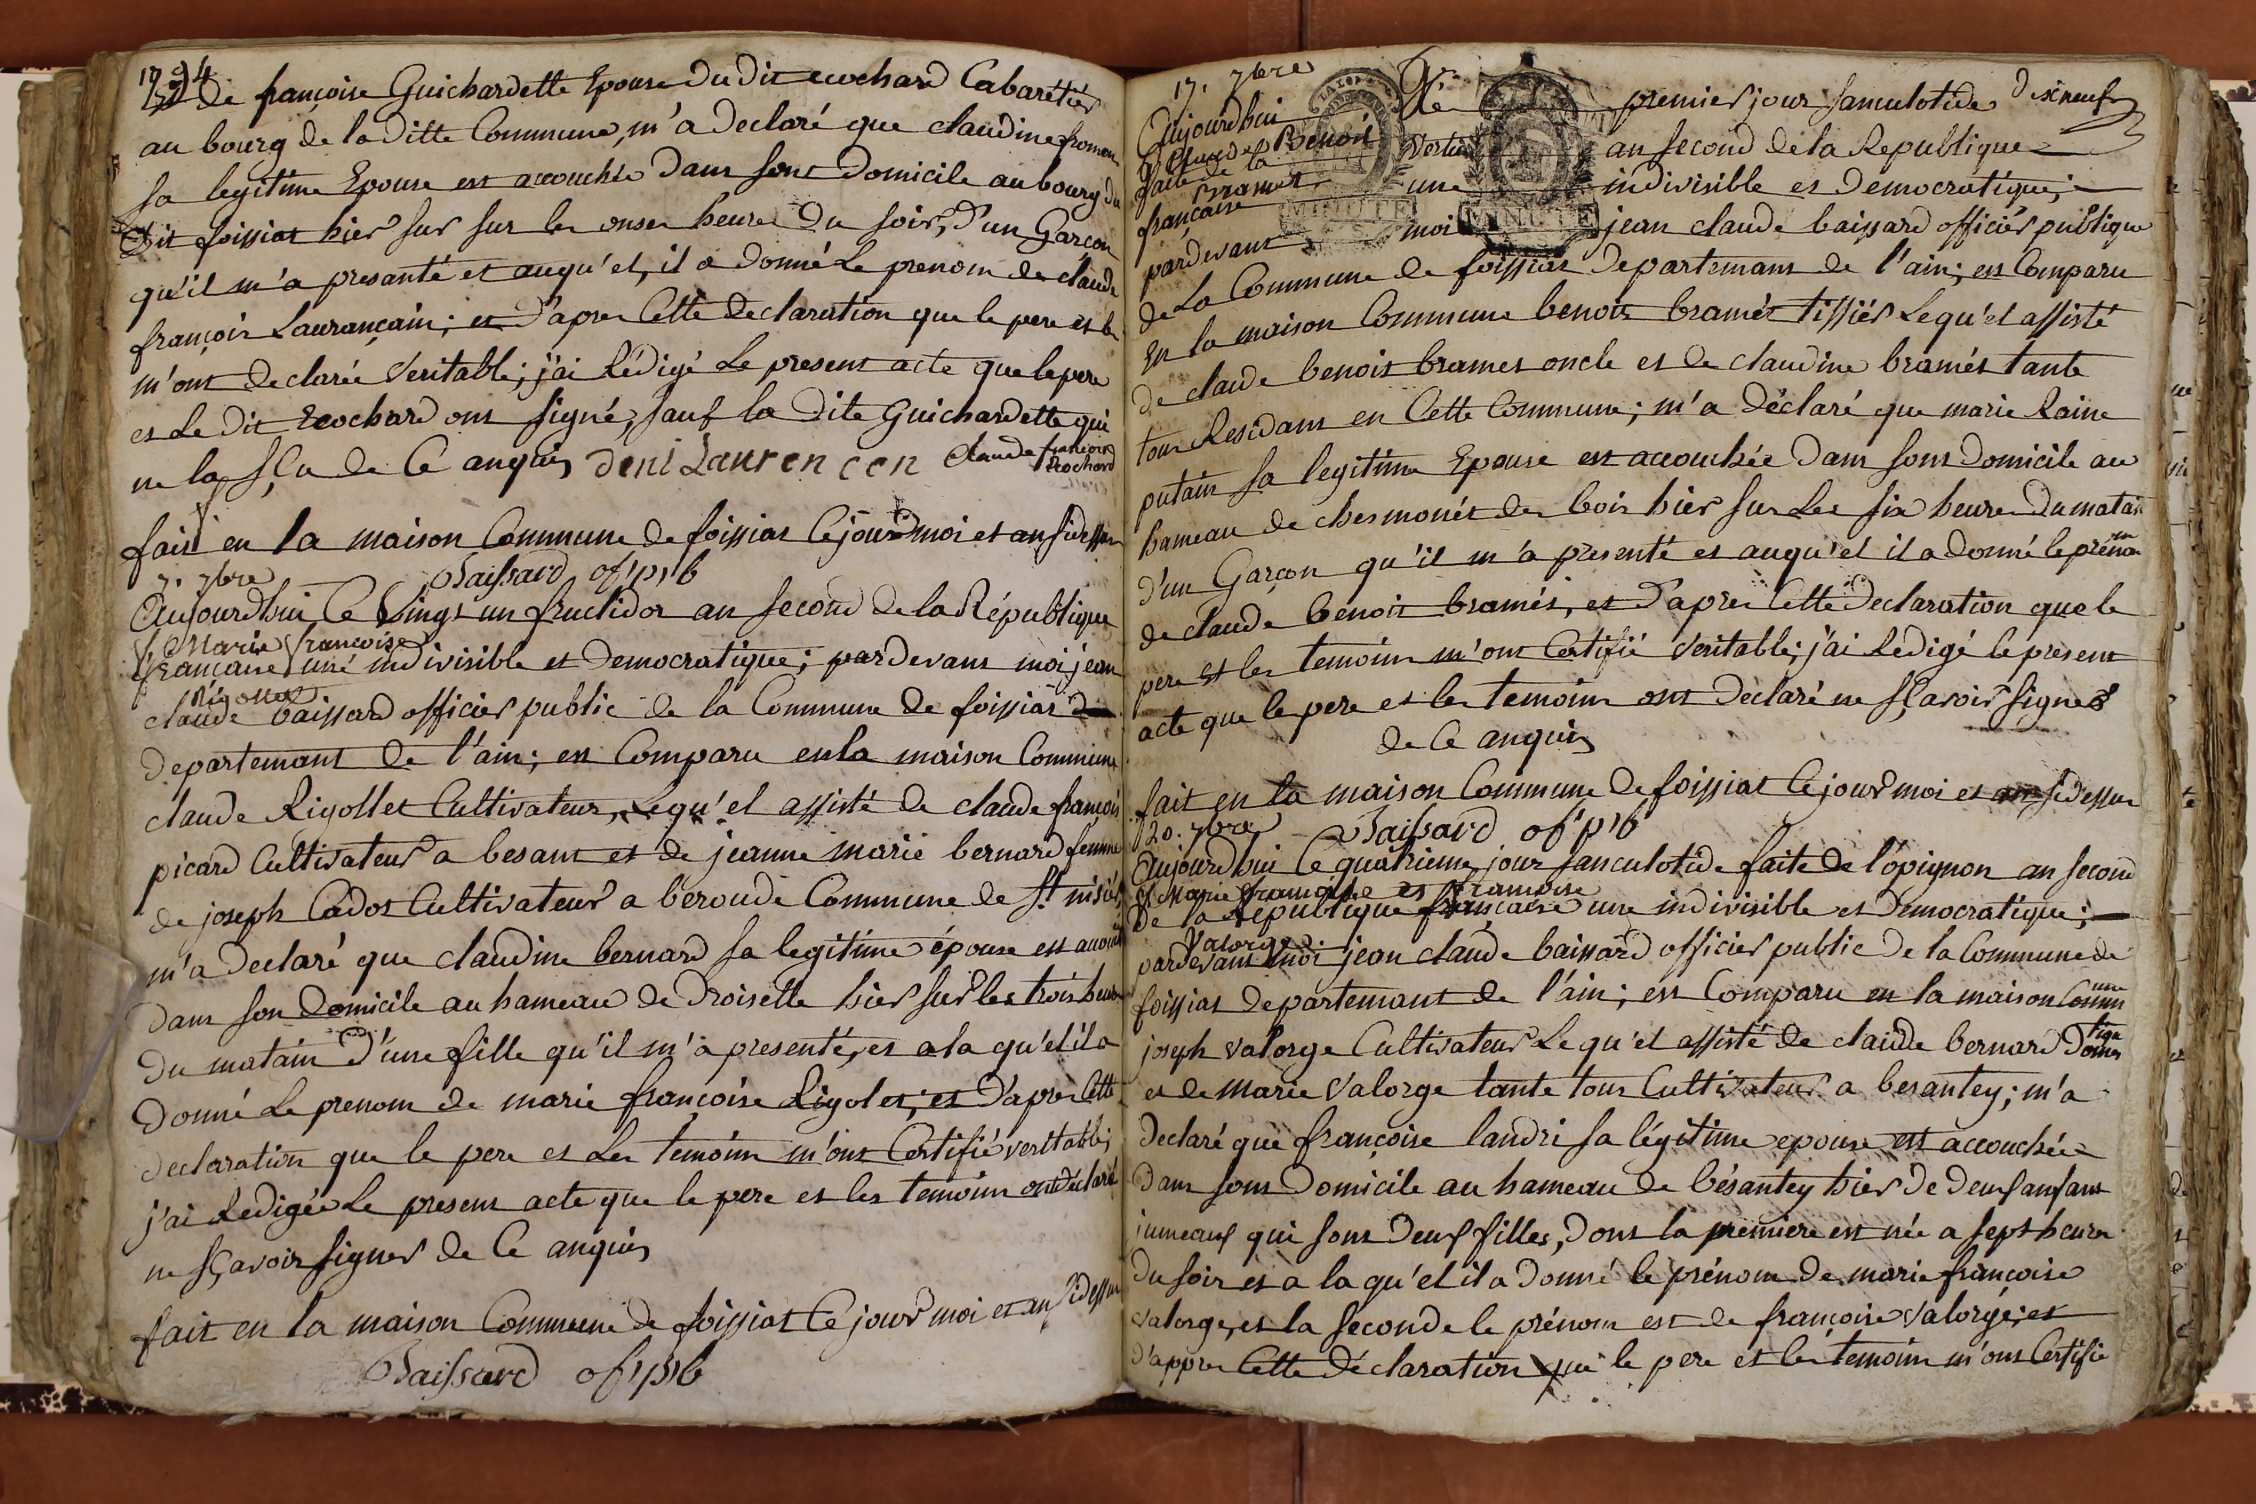 1794
de françoise Guichardette Epouse du dit ecochard Cabaretier
au bourg de la ditte Commune, m'a declaré que claudine froment
sa legitime Epouse est accouchée dans sont domicile au bourg du
dit foissiat hier sur sur les onser heures du soir, d'un Garçon
qu'il m'a presanté et auqu'el, il a donné le prenom de claude
françois Laurançain; et d'apres Cette declaration que le pere et le
m'ont declarée veritable; j'ai Rédigé Le present acte que le pere
et Le dit Ecochard ont signé, sauf la dite Guichardette qui
ne la sçu de Ce anquis deni Laurencen claude françois Ecochard
fait en la maison Commune de foissiat Ce jour moi et an sidessu
Baissard of'p'b
7. 7bre
Aujourdhui Ce vingt un fructidor an second de la République
Marie françoise
française une indivisible et democratique; pardevant moi jean
Rigollet
claude baissard officier public de la Commune de foissiat
departemant de l'ain; est Comparu en la maison Commune
claude Rigollet Cultivateur, Lequ'el assisté de claude françois
picard Cultivateur a besant et de jeanne marie bernard femme
de joseph Cadot Cultivateur a beroudi Commune de St nisiér
m'a declaré que claudine bernard sa legitime épouse est accouché
dans son domicile au hameau de droisette hier sur les trois heure
du matain d'une fille qu'il m'a presenté, et a la qu'el il a
donné Le prenom de marie françoise Rigolet; et d'apres Cette
declaration que le pere et Les temoins m'ont Certifié veritable;
j'ai Rédigée Le present acte que le pere et les temoins ont declaré
ne sçavoir signer de Ce anquis
fait en la maison Commune de foissiat Ce jour moi et an Sidessu
Baissard of'p'b
17. 7bre
Aujourdhui Le premier jour sanculotide dixneuf
Claude Benoit
faite de la vertu an second de la Republique
Bramet
française une indivisible et democratique;
pardevant moi jean claude baissard officiér publique
MINUTE MINUTE
de La Commune de foissiat departemant de l'ain; est Comparu
en la maison Commune benoit bramét tissiér Lequ'el assisté
de claude benoit bramet oncle et de claudine bramét tante
tous Residant en Cette Commune; m'a déclaré que marie Raine
putain sa legitime Epouse est accouchée dans sont domicile au
hameau de chesmonét des bois hier sur Les six heures du matain
d'un Garçon qu'il m'a presenté et auqu'el il a donné le prénom
de claude benoit bramét, et d'apres Cette declaration que le
pere et les temoins m'ont Certifié veritable; j'ai Redigé le present
acte que le pere et les temoins ont declaré ne sçavoir signer
de Ce anquis
fait en la maison Commune de foissiat Ce jour moi et an sidessu
20. 7bre Baissard of'p'b
Aujourdhui Ce quatrieme jour sanculotide faite de l'opignon an second
Marie françoise et françoise
de la Republique française une indivisible et democratique;
Valorge
pardevant moi jean claude baissard officier public de la Commune de
foissiat departemant de l'ain; est Comparu en la maison Commune
joseph valorge Cultivateur Le qu'el assisté de claude bernard domestique
et de marie valorge tante tous Cultivateur a besantey; m'a
declaré que françoise landri sa légitime epouse est accouchée
dans sont domicile au hameau de bésantey hier de deux anfant
jumeaux qui sont deux filles, dont la premiere est née a sept heures
du soir et a la qu'el il a donné le prénom de marie françoise
valorge, et la seconde le prénom est de françoise valorge; et
d'appres Cette déclaration que le pere et les temoins m'ont Certifié